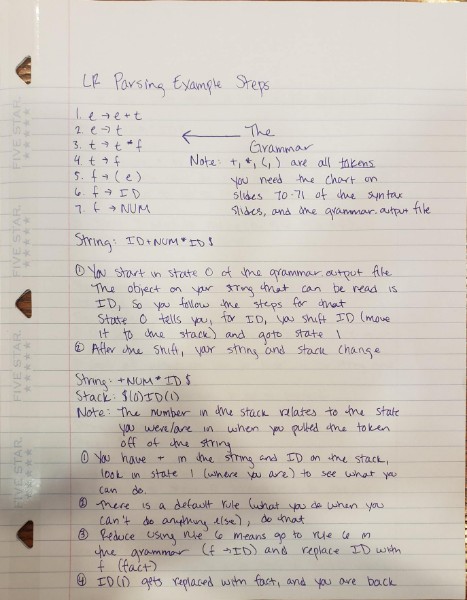 LR Parsing Example Steps
1. e → e + t
2. e → t
3. t → t * f
4. t → f
5. f → ( e )
6. f → ID
7. f → NUM
← The Grammar
Note: +, *, (, ) are all tokens
you need the chart on
slides 70-71 of the syntax
slides, and the grammar.output file
String: ID+NUM*ID$
① You start in state 0 of the grammar.output file
The object on your string that can be read is
ID, so you follow the steps for that
State 0 tells you, for ID, you shift ID (move
it to the stack) and goto state 1
② After the shift, your string and stack change
String: +NUM*ID$
Stack: $(0)ID(1)
Note: The number in the stack relates to the state
you were/are in when you pulled the token
off of the string
① You have + in the string and ID on the stack,
look in state 1 (where you are) to see what you
can do.
② There is a default rule (what you do when you
can't do anything else), do that
③ Reduce using rule 6 means go to rule 6 in
the grammar (f → ID) and replace ID with
f (fact)
④ ID(1) gets replaced with fact, and you are back
FIVE STAR.
FIVE STAR.
FIVE STAR.
FIVE STAR.